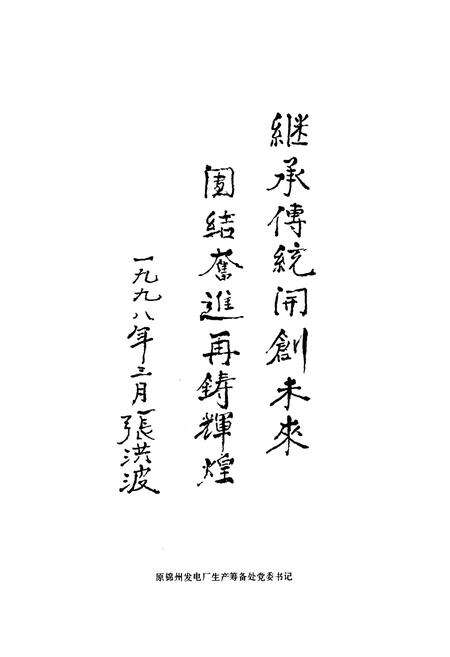 继承傳統開創未來
團結奮進再鑄輝煌
一九九八年三月張洪波
原锦州发电厂生产筹备处党委书记